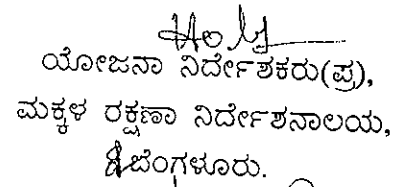 ಯೋಜನಾ ನಿರ್ದೇಶಕರು(ಪ್ರ),
ಮಕ್ಕಳ ರಕ್ಷಣಾ ನಿರ್ದೇಶನಾಲಯ,
ಬೆಂಗಳೂರು.